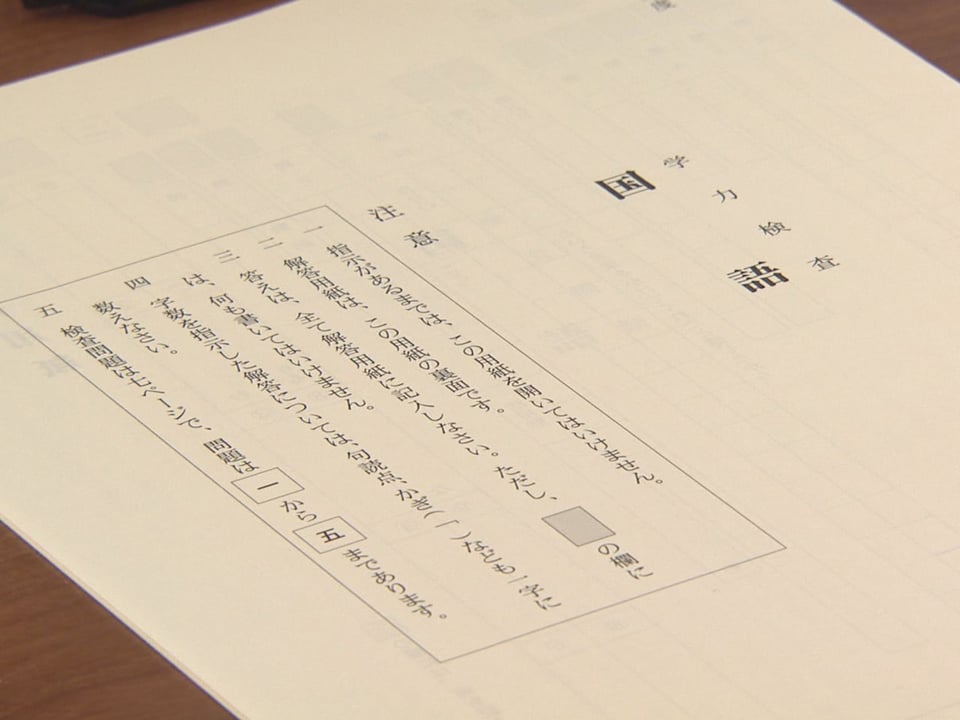 度
学力検査
国語
注意
一 指示があるまでは、この用紙を開いてはいけません。
二 解答用紙は、この用紙の裏面です。
三 答えは、全て解答用紙に記入しなさい。ただし、 の欄に
は、何も書いてはいけません。
四 字数を指示した解答については、句読点、かぎ(「)なども一字に
数えなさい。
五 検査問題は七ページで、問題は一から五まであります。